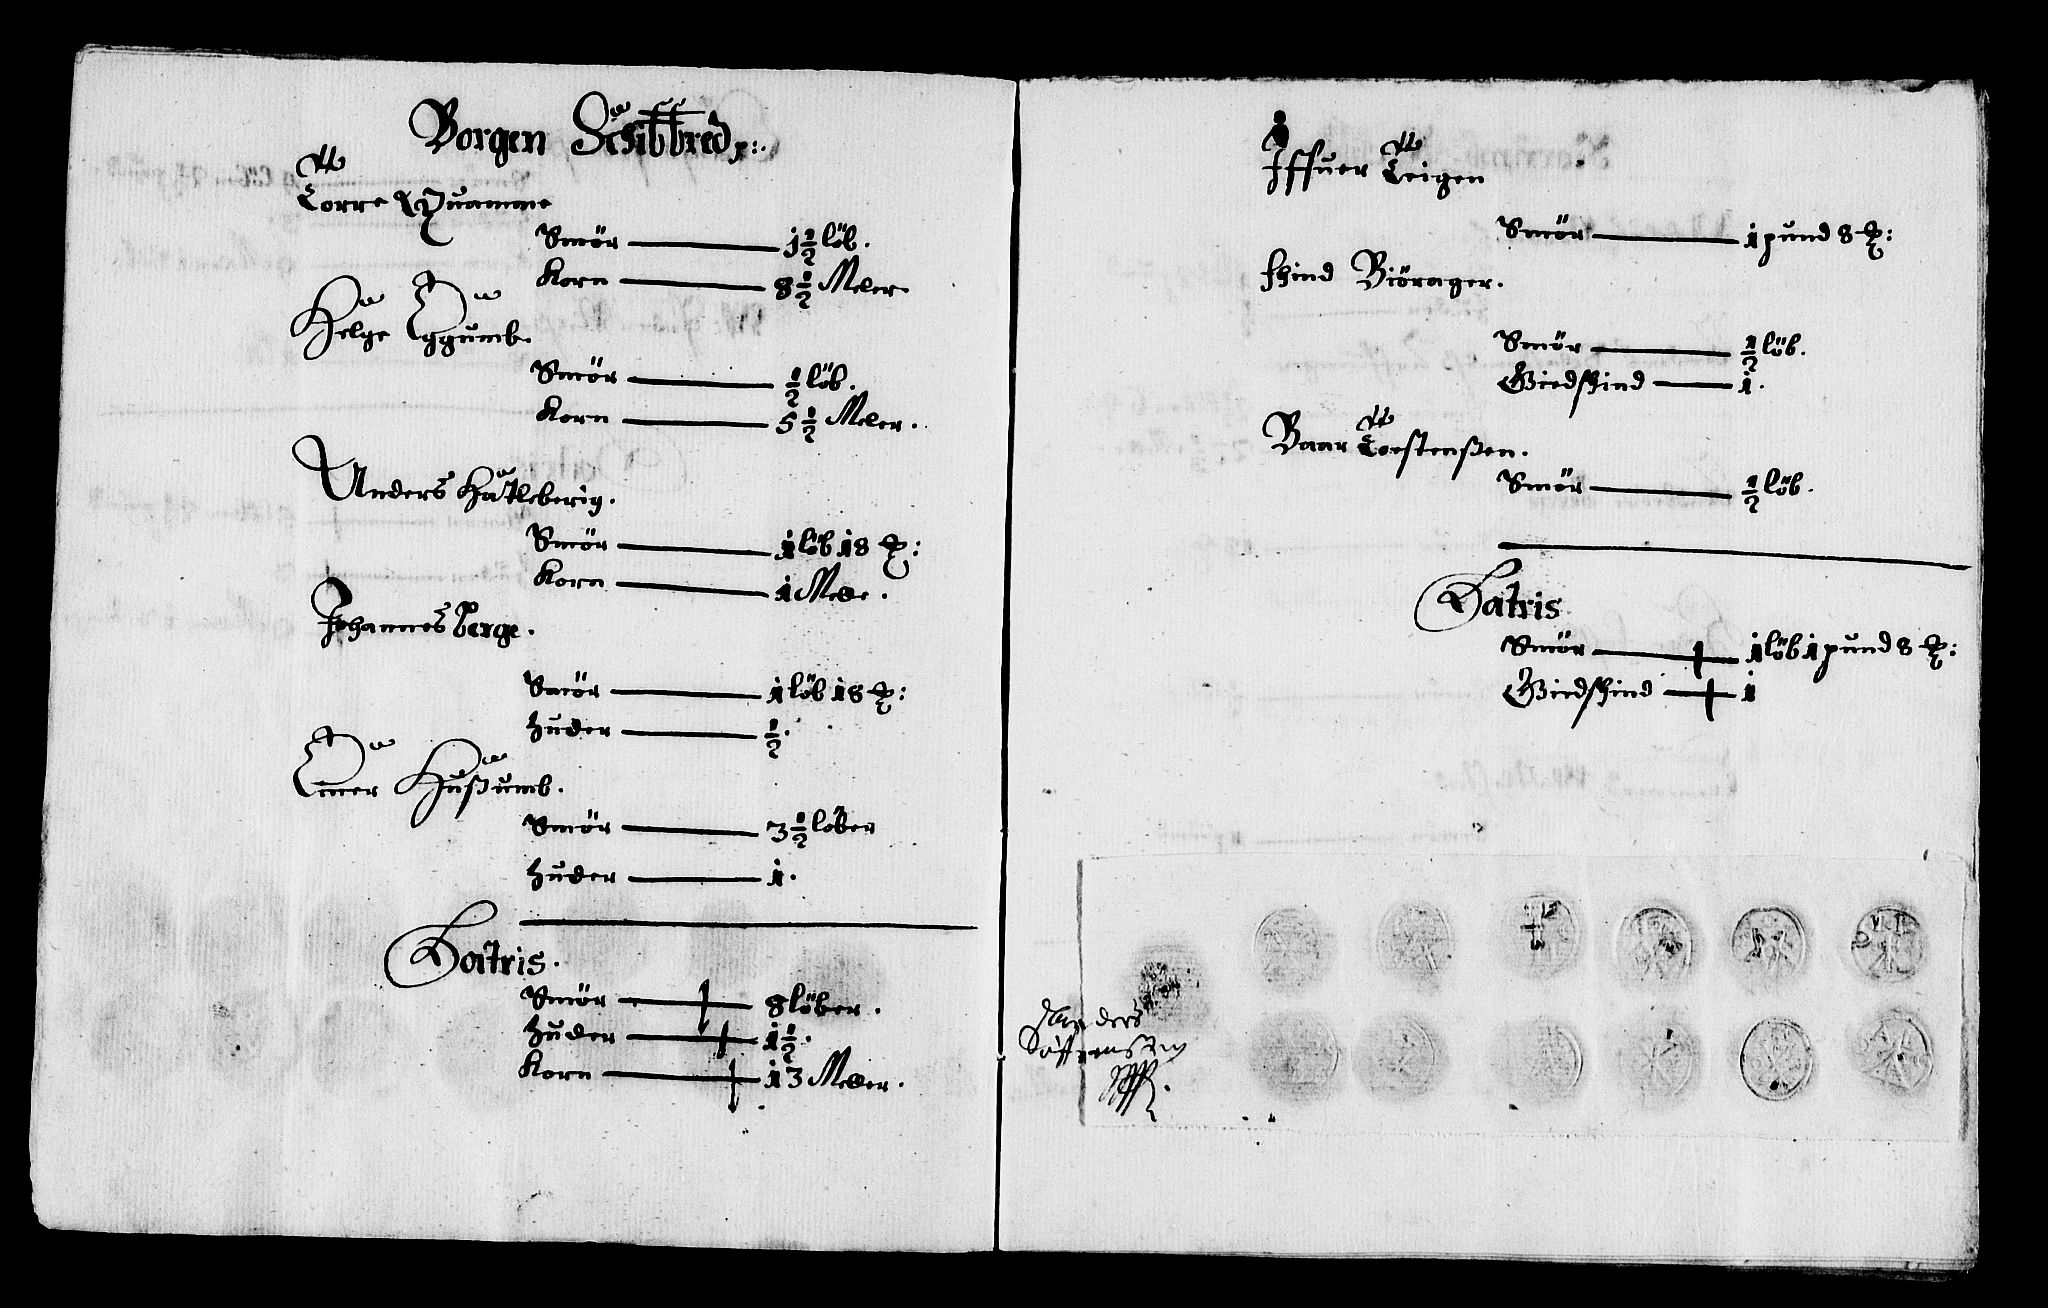 Borgen Schibbred
Torre Quamme
Smör — 1½ löb.
Korn — 8½ Meler.
Helge Eggumb.
Smör — ½ löb.
Korn — 5½ Meler.
Anders Hatleberig.
Smör — 1 löb 18 ℔:
Korn — 1 Mele.
Johannes Berge.
Smör — 1 löb 18 ℔:
Huder — ½.
Einer Hußumb.
Smör — 3½ löber
Huder — 1.
Latris.
Smör — 8 löber.
Huder — 1½.
Korn — 13 Meler.
Iffuer Teigen
Smör — 1 pund 8 ℔:
Biörager.
Smör — ½ löb.
Giedschind — 1.
Baar Torstenßen.
Smör — ½ löb.
Latris
Smör — 1 löb 1 pund 8 ℔:
Giedschind — 1